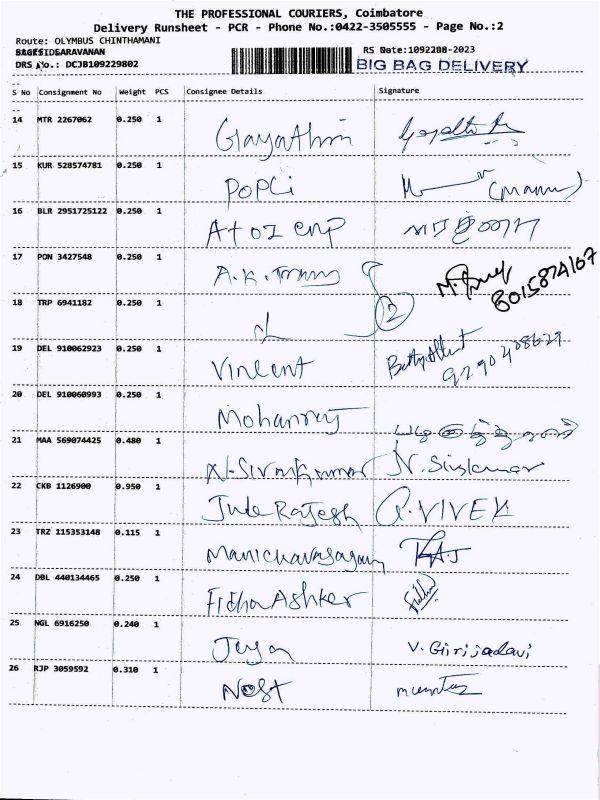 THE PROFESSIONAL COURIERS, Coimbatore
Delivery Runsheet - PCR - Phone No.:0422-3505555 - Page No.:2
Route: OLYMBUS CHINTHAMANI
DRS No.: DCJB109229802
BIG BAG DELIVERY
S No Consignment No Weight PCS Consignee Details Signature
14 MTR 2267062 0.250 1 Gayathiri
15 KUR 528574781 0.250 1 POPCi (Manu)
16 BLR 2951725122 0.250 1 A to Z enp
17 PON 3427548 0.250 1 A.K. 8015874167
18 TRP 6941182 0.250 1 2
19 DEL 910062923 0.250 1 Vincent
20 DEL 910060993 0.250 1 Mohanraj
21 MAA 569074425 0.480 1 N. Sivakumar N. Sivakumar
22 CKB 1126900 0.950 1 Jude Rajesh R. VIVEK
23 TRZ 115353148 0.115 1 Manichavasagam
24 DBL 440134465 0.250 1 Fidha Ashker
25 NGL 6916250 0.240 1 Jaya V. Girijadavi
26 RJP 3059592 0.310 1 Nest mumtaz